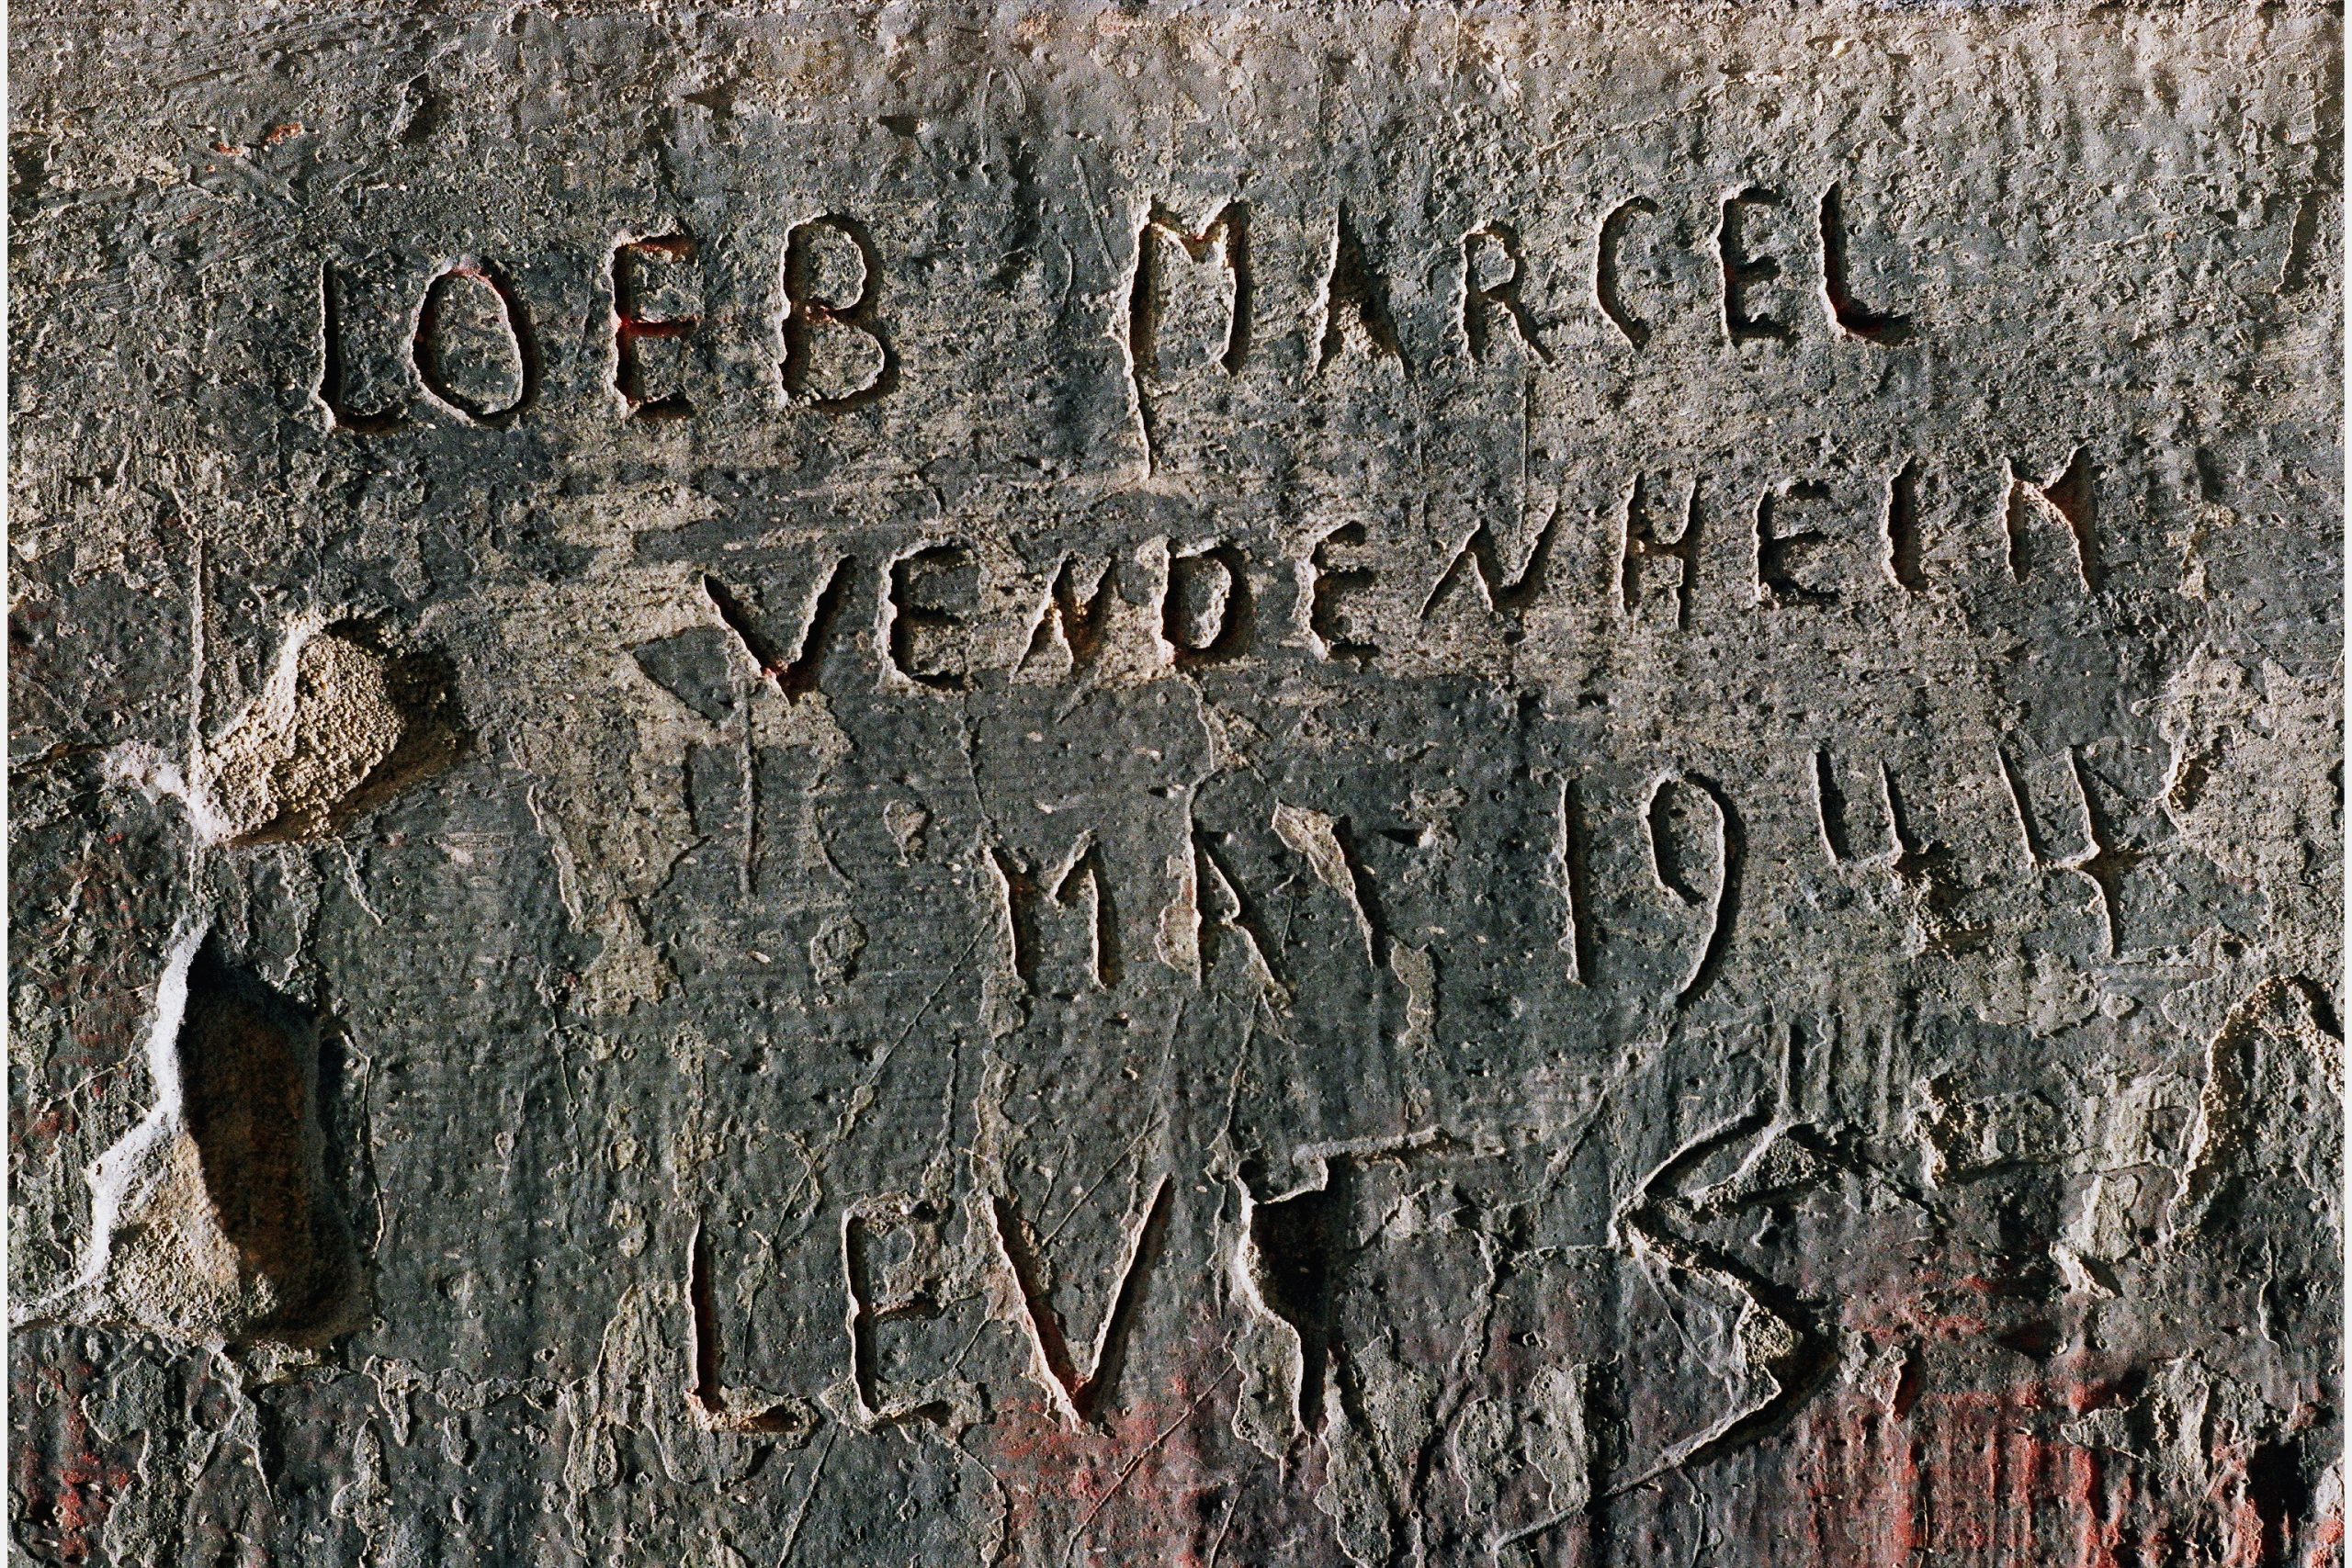 LOEB MARCEL
VENDENHEIM
MAI 1944
LEVI S